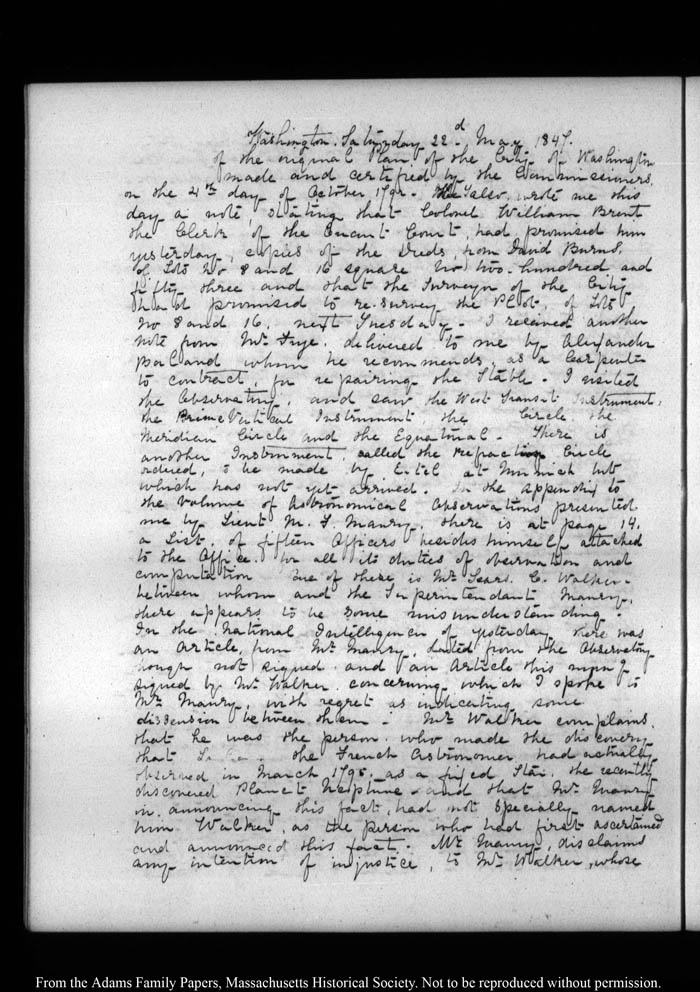 Washington. Saturday 22d. May 1847.
of the original Plan of the City of Washington
made and certified by the Commissioners,
on the 4th day of October 1792. He also, wrote me this
day a note, stating that Colonel William Brent
the Clerk of the Circuit Court, had promised him
yesterday, copies of the Deeds, from David Burns,
of Lots No 8 and 16 square No two-hundred and
fifty three and that the Surveyor of the City
had promised to re-survey the Plot, of Lots
No 8 and 16. next Tuesday. I received another
note from Mr. Frye. delivered to me by Alexander
Borland whom he recommends, as a Carpenter
to contract, for repairing the Stable. I visited
the Observatory, and saw the West Transit Instrument,
the Prime Vertical Instrument, the Circle the
Meridian Circle and the Equatorial. There is
another Instrument, called the refraction Circle
ordered, to be made by Ertel at Munich but
which has not yet arrived. In the appendix to
the volume of Astronomical Observations presented
me by Lieut M. F. Maury, there is at page 14.
a List, of fifteen Officers besides himself, attached
to the Office. for all its duties of observation and
computation one of these is Mr Sears. C. Walker.
between whom and the Superintendant Maury,
there appears to be some misunderstanding.
In the National Intelligencer of yesterday, there was
an Article, from Mr Maury, dated from the Observatory
though not signed and an Article this morng
signed by Mr Walker. concerning which I spoke to
Mr Maury, with regret as indicating some
dissension between them. Mr Walker complains,
that he was the person who made the discovery
that the French Astronomer had actually
observed in March 1795. as a fixed Star, the recently
discovered Planet Neptune and that Mr Maury
in announcing this fact, had not specially named
him Walker, as the person who had first ascertained
and announced this fact. Mr Maury, disclaims
any intention of injustice, to Mr Walker, whose
From the Adams Family Papers, Massachusetts Historical Society. Not to be reproduced without permission.